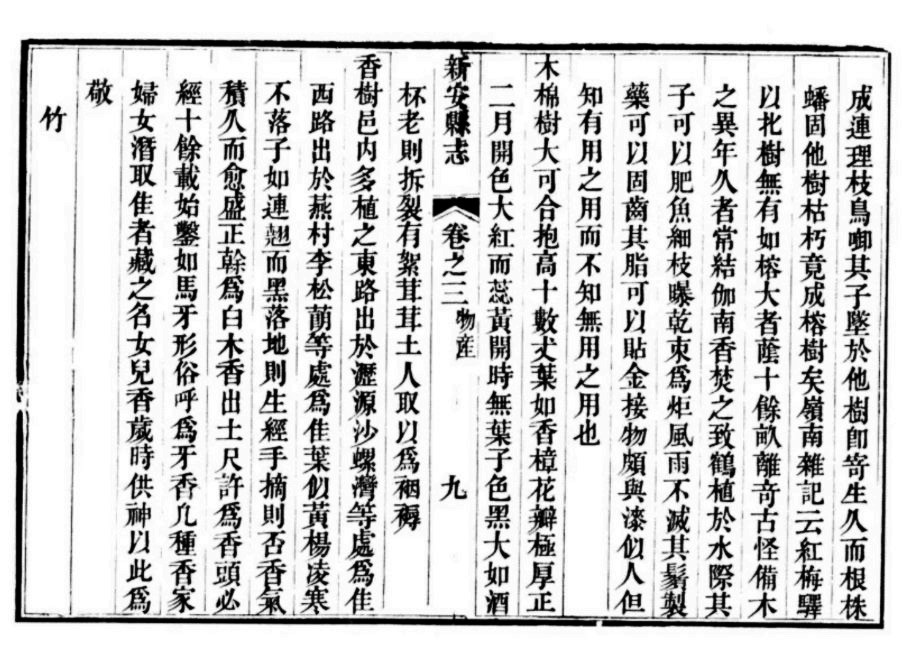 成連理枝鳥啣其子墜於他樹卽寄生久而根株
蟠固他樹枯朽竟成榕樹矣嶺南雜記云紅梅驛
以北樹無有如榕大者蔭十餘畝離奇古怪備木
之異年久者常結伽南香焚之致鶴植於水際其
子可以肥魚細枝曝乾束爲炬風雨不滅其鬚製
藥可以固齒其脂可以貼金接物頗與漆似人但
知有用之用而不知無用之用也
木棉樹大可合抱高十數丈葉如香樟花瓣極厚正
二月開色大紅而蕊黃開時無葉子色黑大如酒
新安縣志 卷之三 物產 九
杯老則拆裂有絮茸茸土人取以爲裀褥
香樹邑內多植之東路出於瀝源沙螺灣等處爲佳
西路出於燕村李松蓢等處爲佳葉似黃楊凌寒
不落子如連翹而黑落地則生經手摘則否香氣
積久而愈盛正幹爲白木香出土尺許爲香頭必
經十餘載始鑿如馬牙形俗呼爲牙香凡種香家
婦女潛取佳者藏之名女兒香歲時供神以此爲
敬
竹